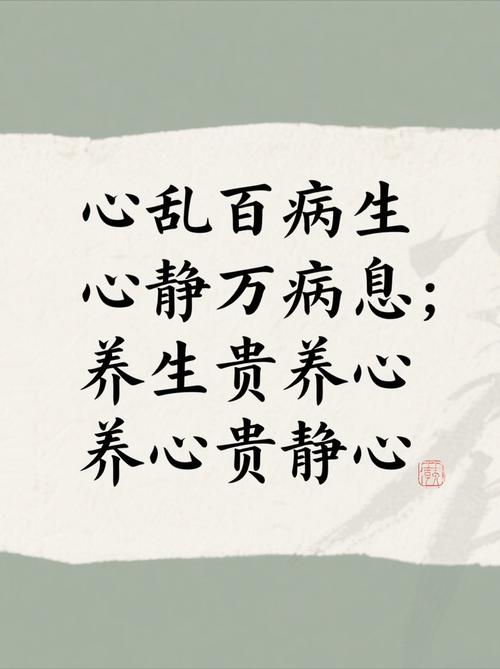 心乱百病生
心静万病息；
养生贵养心
养心贵静心